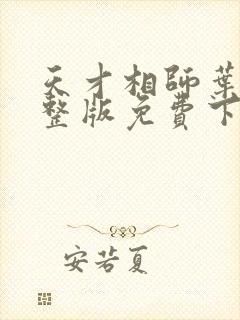 天才相师葉
整版免費下
安若夏